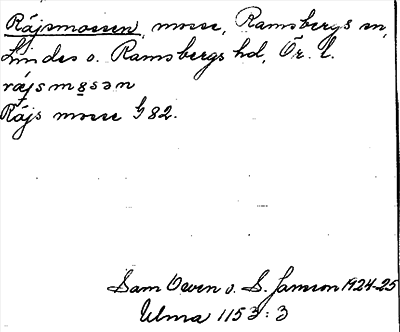 Råjsmossen, mosse, Ramsbergs sn,
Lindes o. Ramsbergs hd, Ör. l.
råjsmɷsən
Råjs mosse G 82.
Sam Owen o. S. Janson 1924-25
Ulma 1153:3